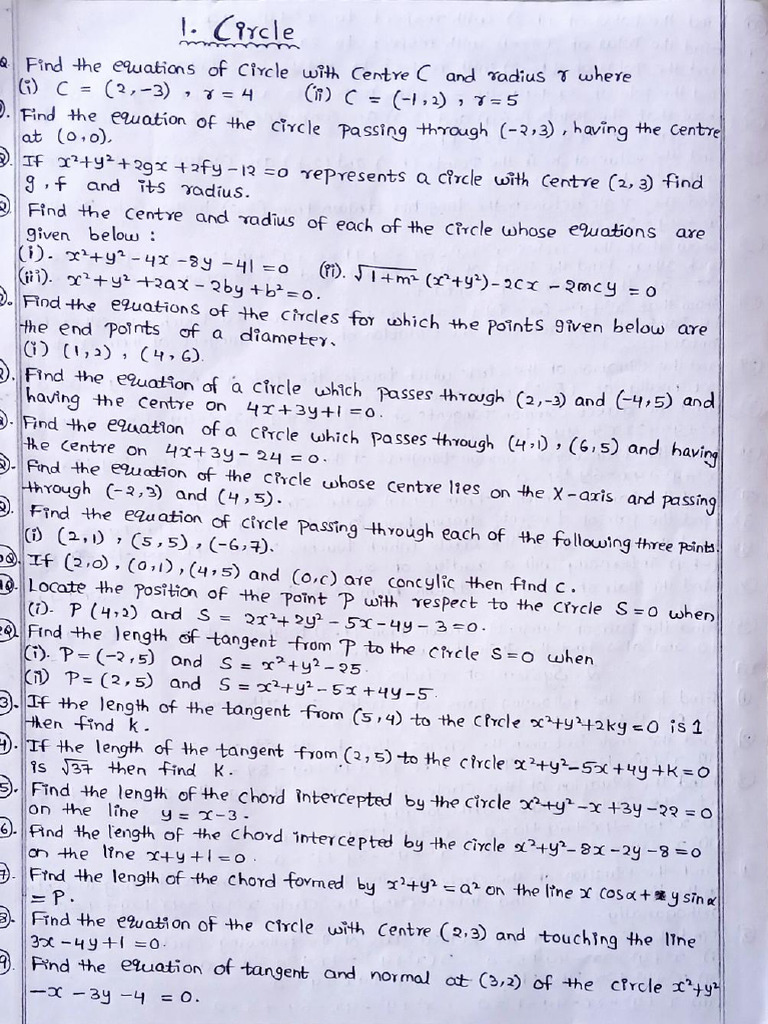 1. Circle
Q. Find the equations of circle with centre C and radius r where
(i) C = (2,-3) , r = 4 (ii) C = (-1,2) , r=5
Find the equation of the circle passing through (-2,3), having the centre
at (0,0).
Q. If x²+y²+2gx+2fy-12=0 represents a circle with centre (2,3) find
g,f and its radius.
Q. Find the centre and radius of each of the circle whose equations are
given below :
(i). x²+y²-4x-8y-41=0 (ii). √1+m² (x²+y²)-2cx-2mcy=0
(iii). x²+y²+2ax-2by+b²=0.
Find the equations of the circles for which the points given below are
the end points of a diameter.
(i) (1,2), (4,6).
Find the equation of a circle which passes through (2,-3) and (-4,5) and
having the centre on 4x+3y+1=0.
Find the equation of a circle which passes through (4,1), (6,5) and having
the centre on 4x+3y-24=0.
Q. Find the equation of the circle whose centre lies on the X-axis and passing
through (-2,3) and (4,5).
Q. Find the equation of circle passing through each of the following three points.
(i) (2,1), (5,5), (-6,7).
If (2,0), (0,1), (4,5) and (0,c) are concylic then find c.
Locate the position of the point P with respect to the circle S=0 when
(i). P (4,2) and S = 2x²+2y²-5x-4y-3=0.
Find the length of tangent from P to the circle S=0 when
(i). P=(-2,5) and S = x²+y²-25.
(ii) P=(2,5) and S = x²+y²-5x+4y-5.
3. If the length of the tangent from (5,4) to the circle x²+y²+2ky=0 is 1
then find k.
4). If the length of the tangent from (2,5) to the circle x²+y²-5x+4y+k=0
is √37 then find k.
5. Find the length of the chord intercepted by the circle x²+y²-x+3y-22=0
on the line y=x-3.
6. Find the length of the chord intercepted by the circle x²+y²-8x-2y-8=0
on the line x+y+1=0.
7. Find the length of the chord formed by x²+y²=a² on the line x cosα+ y sinα
= P.
8. Find the equation of the circle with centre (2,3) and touching the line
3x-4y+1=0.
9 Find the equation of tangent and normal at (3,2) of the circle x²+y²
-x-3y-4=0.